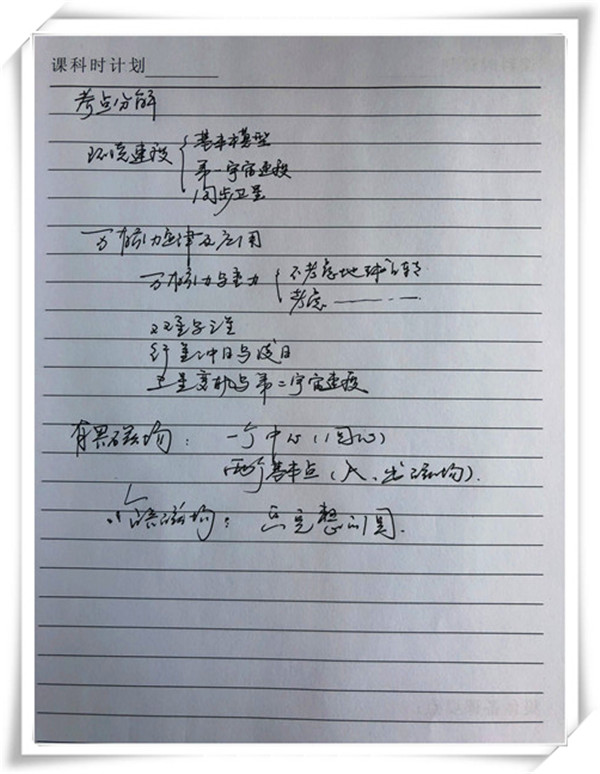 课科时计划
考点分解
环绕速度 { 基本模型
第一宇宙速度
同步卫星
万有引力定律及应用
万有引力与重力 { 不考虑地球自转
考虑 ——·—·
双星与三星
行星冲日与凌日
卫星变轨与第二宇宙速度
有界磁场: 一个中心(圆心)
两个基本点(入、出磁场).
磁场: 完整的圆.